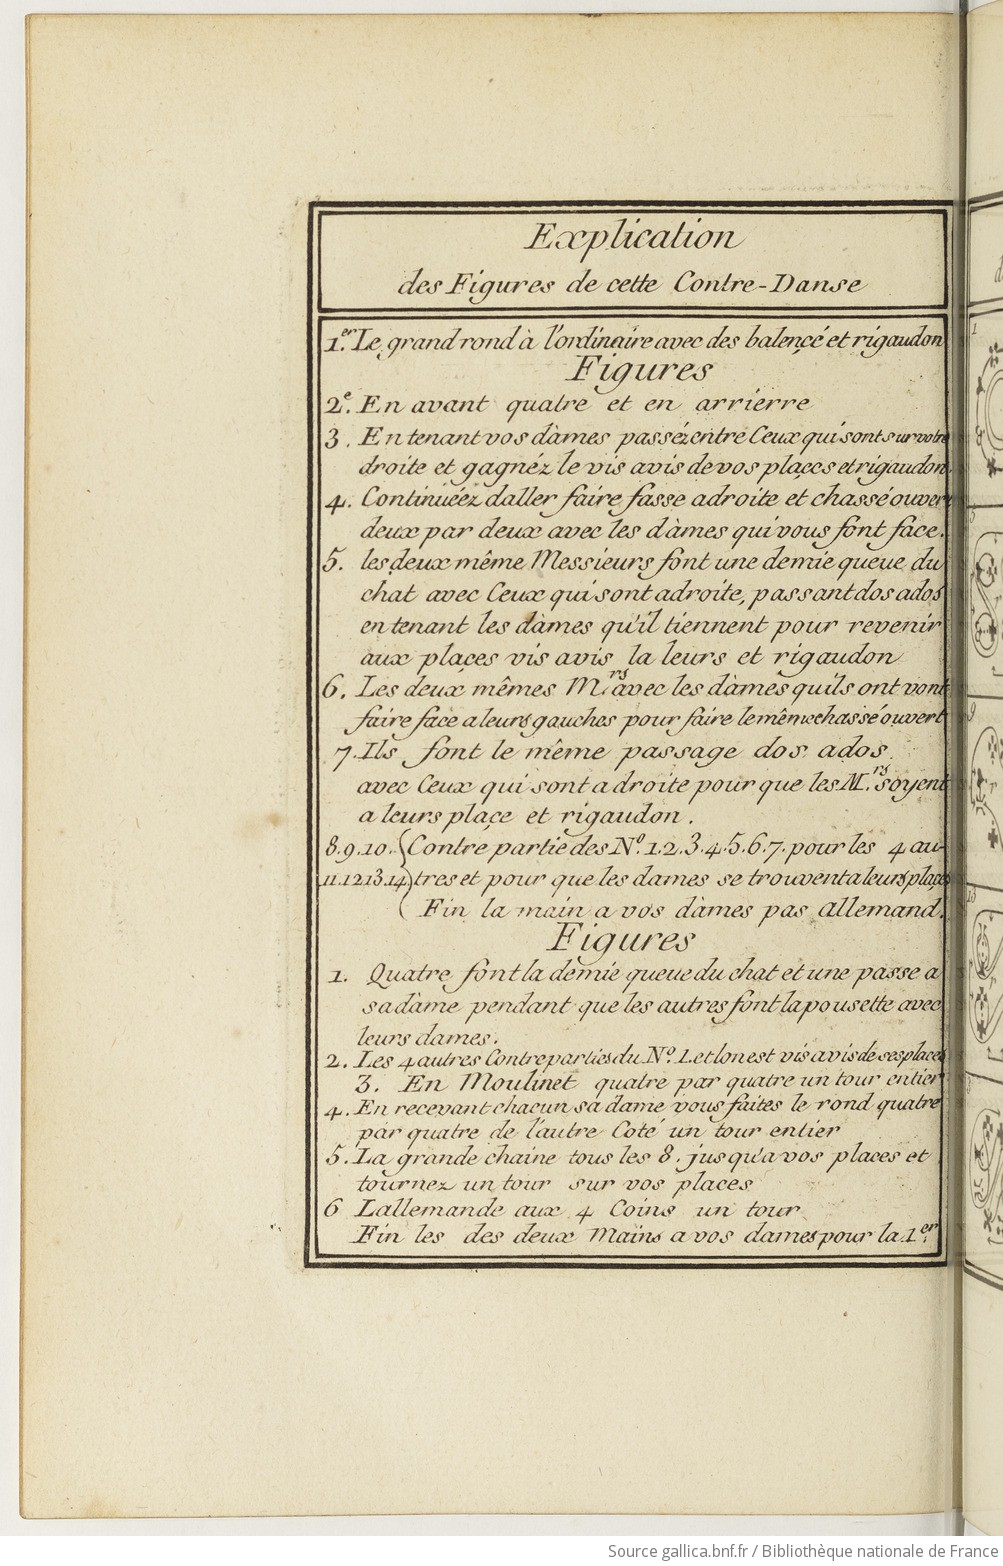 Explication
des Figures de cette Contre-Danse
1.er Le grand rond à l'ordinaire avec des balencé et rigaudon
Figures
2.e En avant quatre et en arrierre
3. En tenant vos dàmes passéz entre Ceux qui sont sur votre
droite et gagnéz le vis avis de vos plaçes et rigaudon
4. Continuéez daller faire fasse adroite et chassé ouvert
deux par deux avec les dàmes qui vous font face.
5. les deux même Messieurs font une demie queue du
chat avec Ceux qui sont adroite, passant dos ados
en tenant les dàmes qu'il tiennent pour revenir
aux plaçes vis avis la leurs et rigaudon
6. Les deux mêmes M.rs avec les dàmes quils ont vont
faire face a leurs gauches pour faire le même chassé ouvert
7. Ils font le même passage dos ados
avec Ceux qui sont a droite pour que les M.rs soyent
a leurs plaçe et rigaudon.
8.9.10. Contre partie des N.o 1.2.3.4.5.6.7. pour les 4 au-
11.12.13.14 tres et pour que les dames se trouvent a leurs plaçes
Fin la main a vos dàmes pas allemand.
Figures
1. Quatre font la demie queue du chat et une passe a
sa dàme pendant que les autres font la pousette avec
leurs dames.
2. Les 4 autres Contreparties du N.o 1. et lon est vis avis de ses places
3. En Moulinet quatre par quatre un tour entier
4. En recevant chacun sa dame vous faites le rond quatre
par quatre de l'autre Coté un tour entier
5. La grande chaine tous les 8. jusqu'a vos places et
tournez un tour sur vos places
6 Lallemande aux 4 Coins un tour
Fin les des deux Mains a vos dames pour la 1.er
Source gallica.bnf.fr / Bibliothèque nationale de France